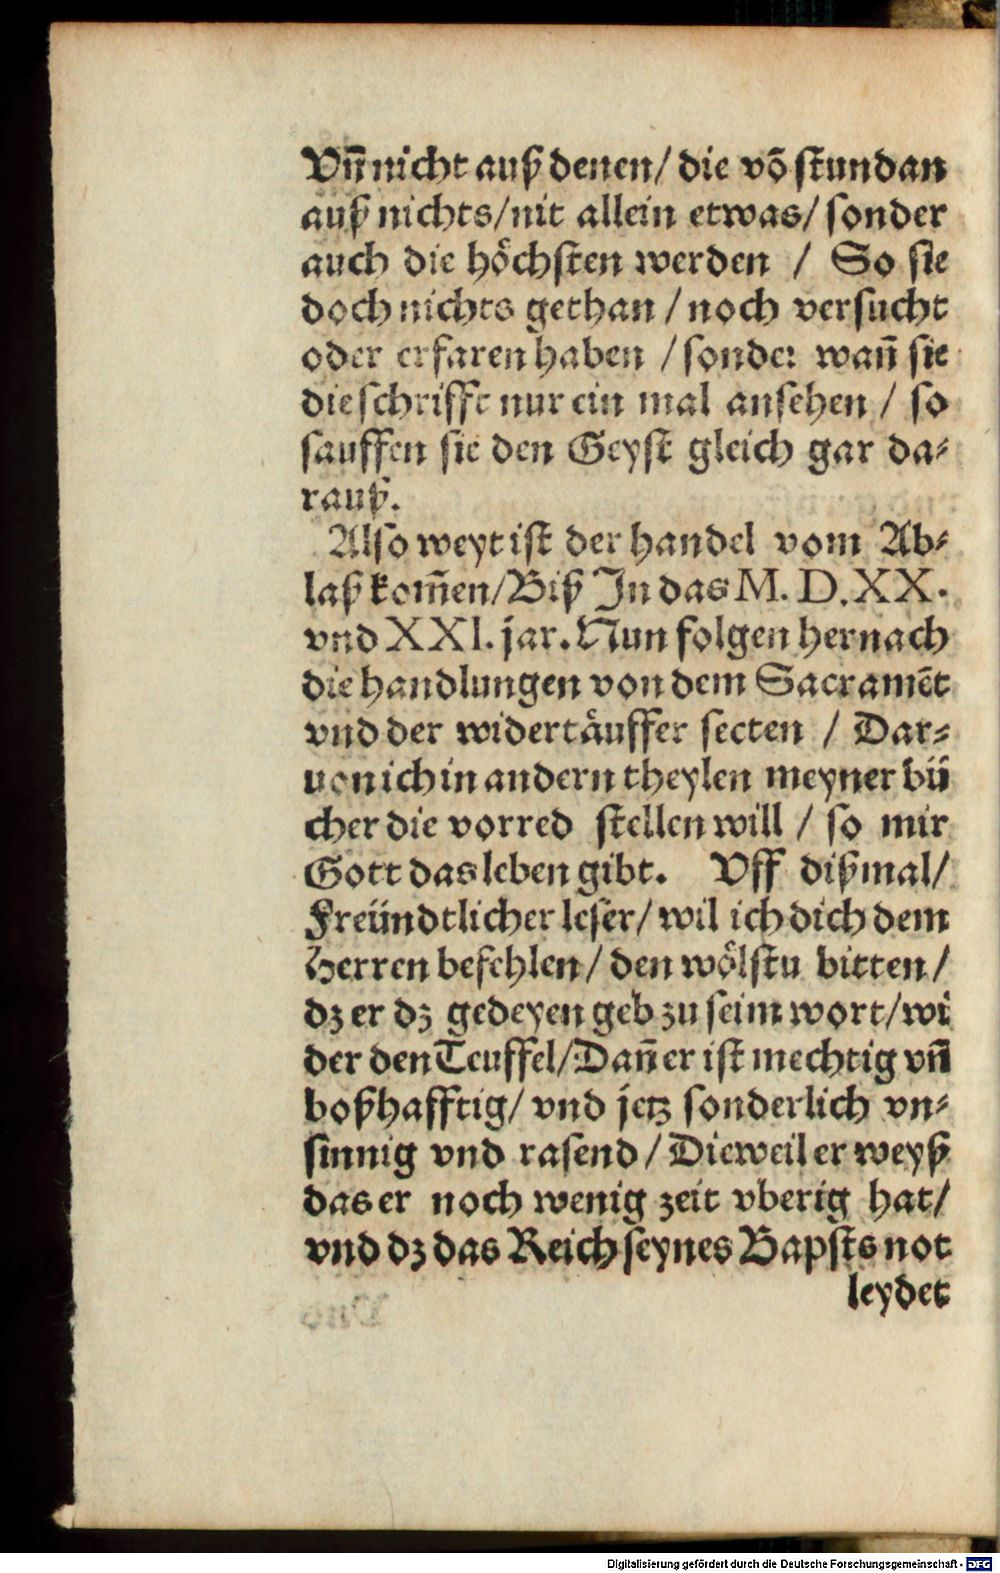 Vn̄ nicht auß denen/ die vō stundan
auß nichts/ nit allein etwas/ sonder
auch die hoͤchsten werden / So sie
doch nichts gethan / noch versucht
oder erfaren haben / sonder wañ sie
die schrifft nur ein mal ansehen / so
sauffen sie den Geyst gleich gar da⸗
rauß.
Also weyt ist der handel vom Ab⸗
laß kom̄en/ Biß In das M. D. XX.
vnd XXI. jar. Nun folgen hernach
die handlungen von dem Sacramēt
vnd der widertaͤuffer secten / Dar⸗
uon ich in andern theylen meyner bü
cher die vorred stellen will / so mir
Gott das leben gibt. Vff dißmal/
Freündtlicher leser/ wil ich dich dem
Herren befehlen/ den woͤlstu bitten/
dz er dz gedeyen geb zu seim wort/ wi
der den Teuffel/ Dañ er ist mechtig vñ
boßhafftig/ vnd jetz sonderlich vn⸗
sinnig vnd rasend / Dieweil er weyß
das er noch wenig zeit vberig hat/
vnd dz das Reich seynes Bapsts not
leydet
Digitalisierung gefördert durch die Deutsche Forschungsgemeinschaft - DFG